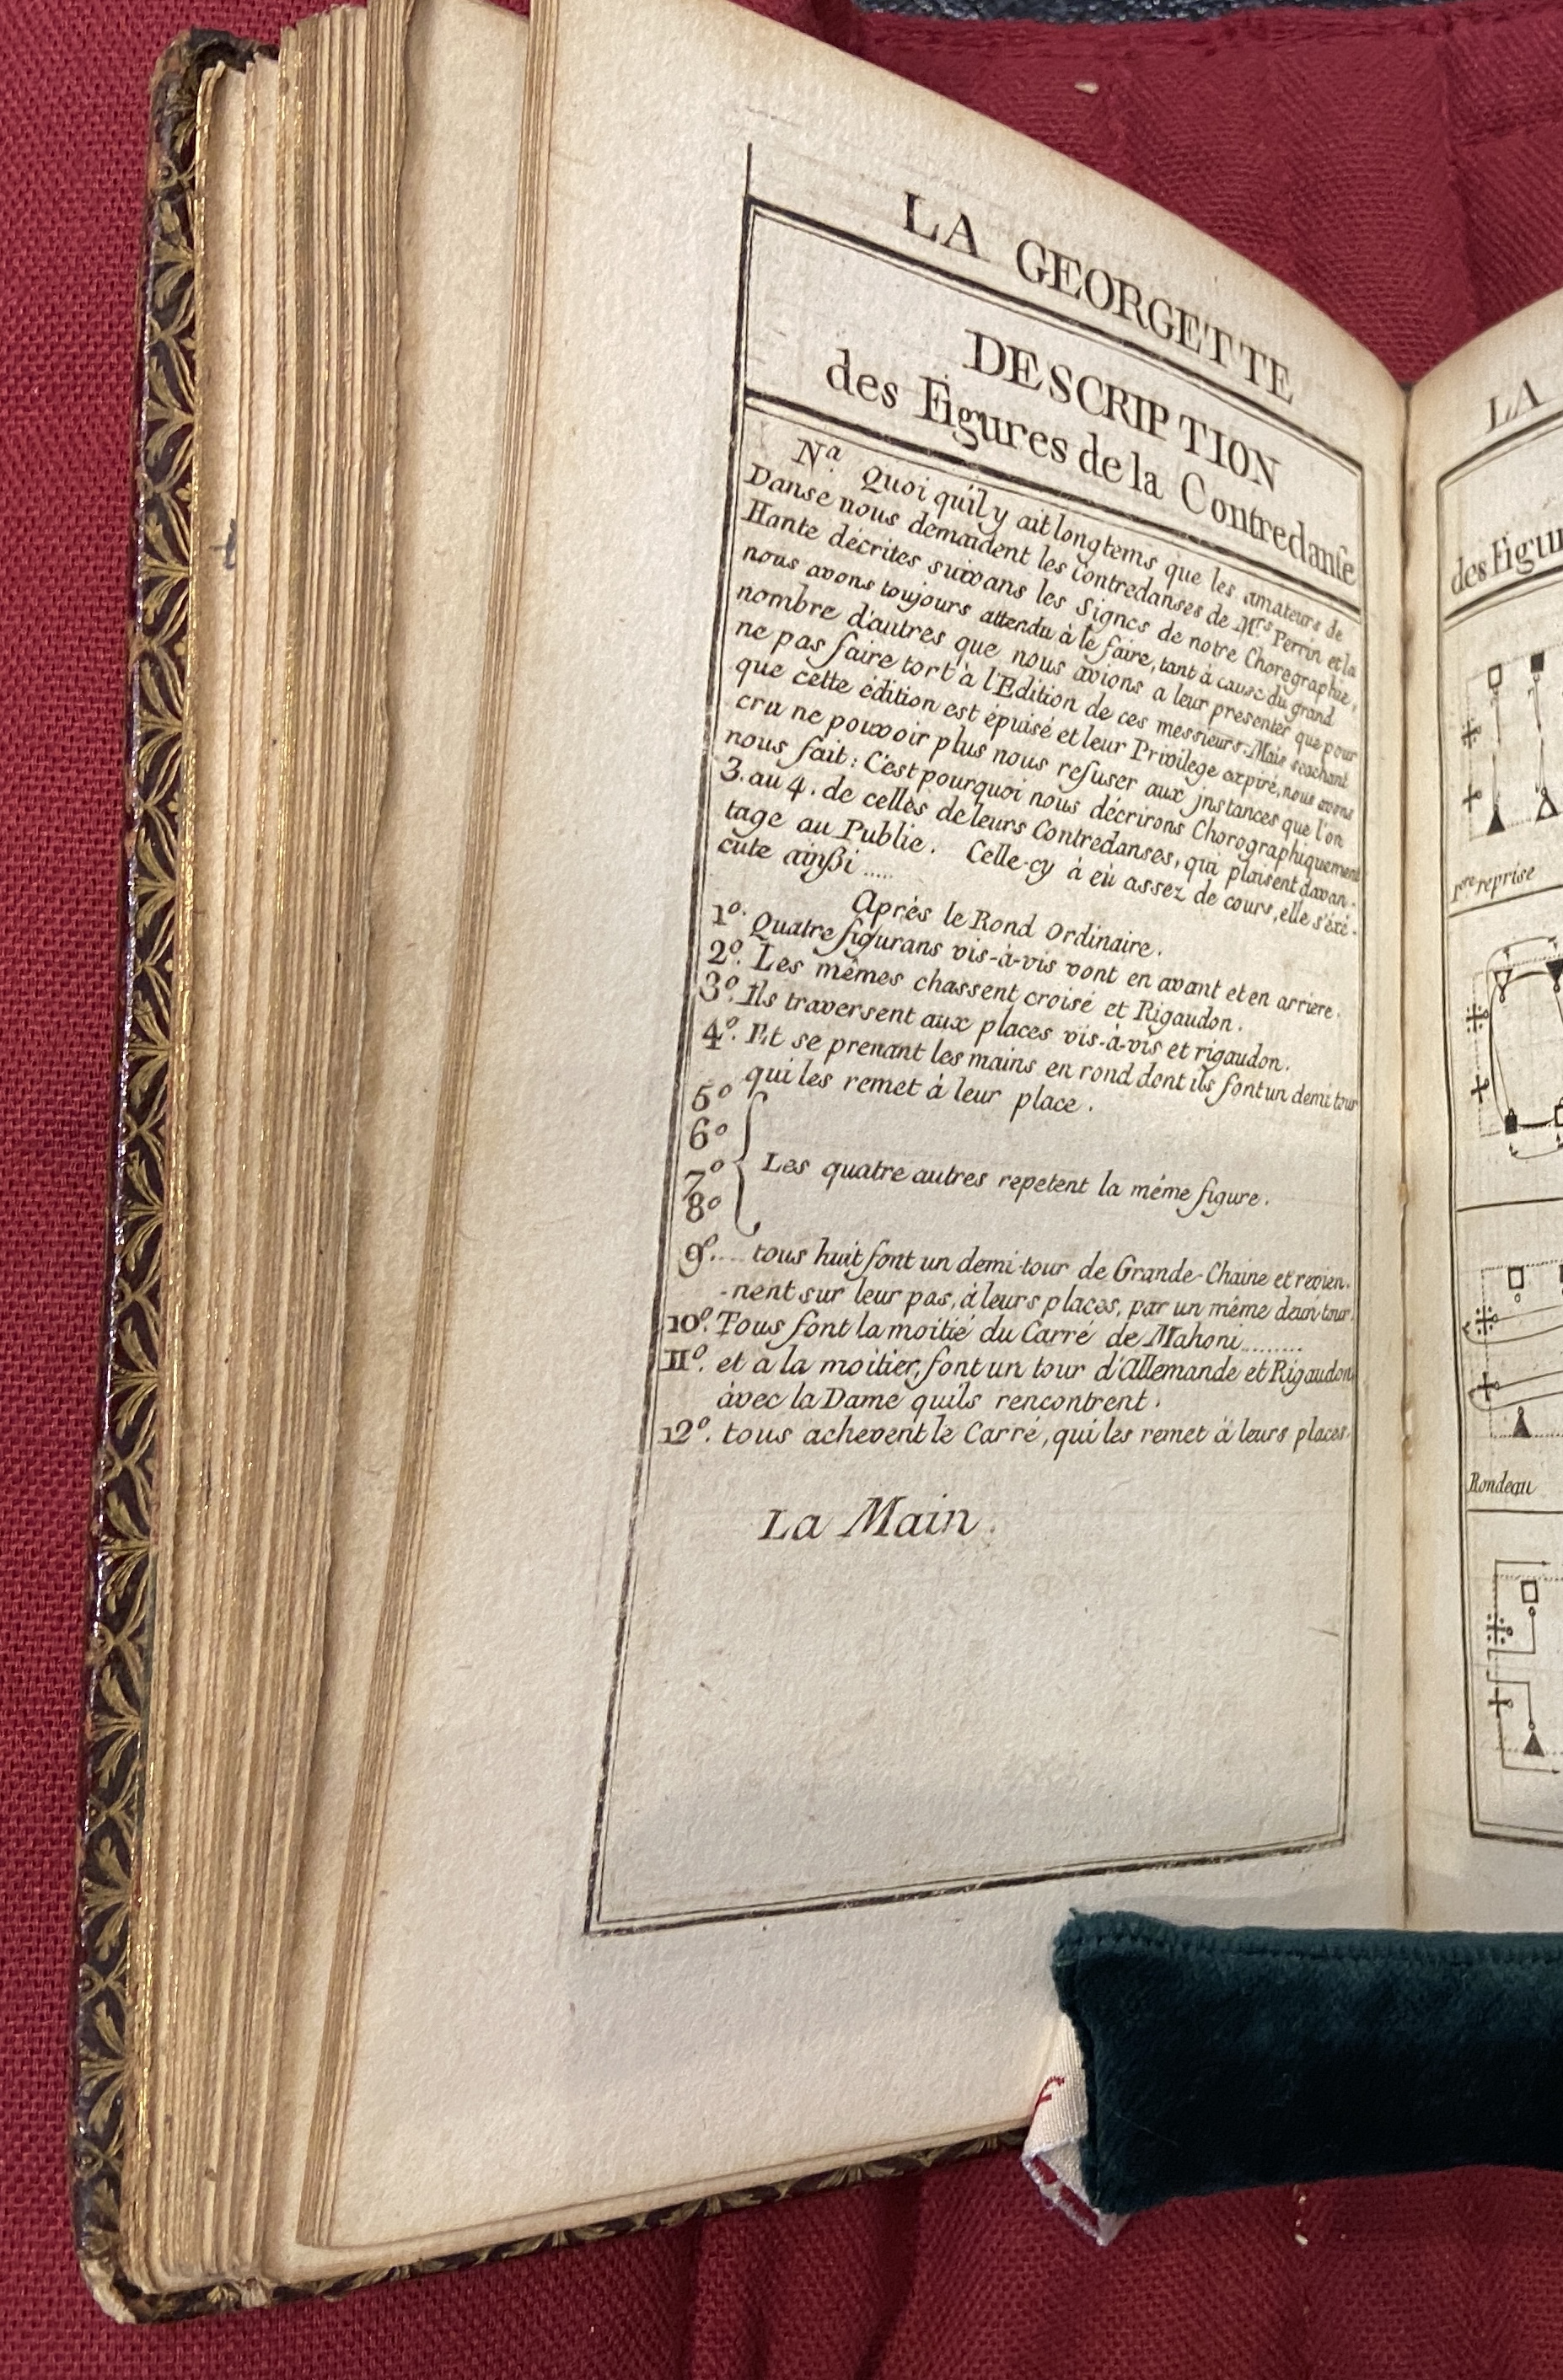 LA GEORGETTE
DESCRIPTION
des Figures de la Contredanse
Na. Quoi qu'il y ait longtems que les amateurs de
Danse nous demandent les Contredanses de Mrs. Perrin et la
Hante décrites suivans les Signes de notre Choregraphie,
nous avons toujours attendu à le faire, tant à cause du grand
nombre d'autres que nous avions a leur presenter que pour
ne pas faire tort à l'Edition de ces messieurs. Mais scachant
que cette édition est épuisé et leur Privilege expiré, nous avons
cru ne pouvoir plus nous refuser aux jnstances que l'on
nous fait: C'est pourquoi nous décrirons Chorographiquement
3. au 4. de celles de leurs Contredanses, qui plaisent davan-
tage au Public. Celle-cy à eü assez de cours, elle s'éxé-
cute ainsi .....
Après le Rond Ordinaire.
1o. Quatre figurans vis-à-vis vont en avant et en arriere.
2o. Les mêmes chassent croisé et Rigaudon.
3o. Ils traversent aux places vis-à-vis et rigaudon.
4o. Et se prenant les mains en rond dont ils font un demi tour
qui les remet à leur place.
5o
6o
7o
8o
Les quatre autres repetent la même figure.
9o.... tous huit font un demi-tour de Grande-Chaine et revien-
-nent sur leur pas, à leurs places, par un même demi-tour.
10o. Tous font la moitié du Carré de Mahoni........
11o. et a la moitier, font un tour d'Allemande et Rigaudon
àvec la Dame quils rencontrent.
12o. tous achevent le Carré, qui les remet à leurs places.
La Main.
LA
des Figur
1ere reprise
Rondeau